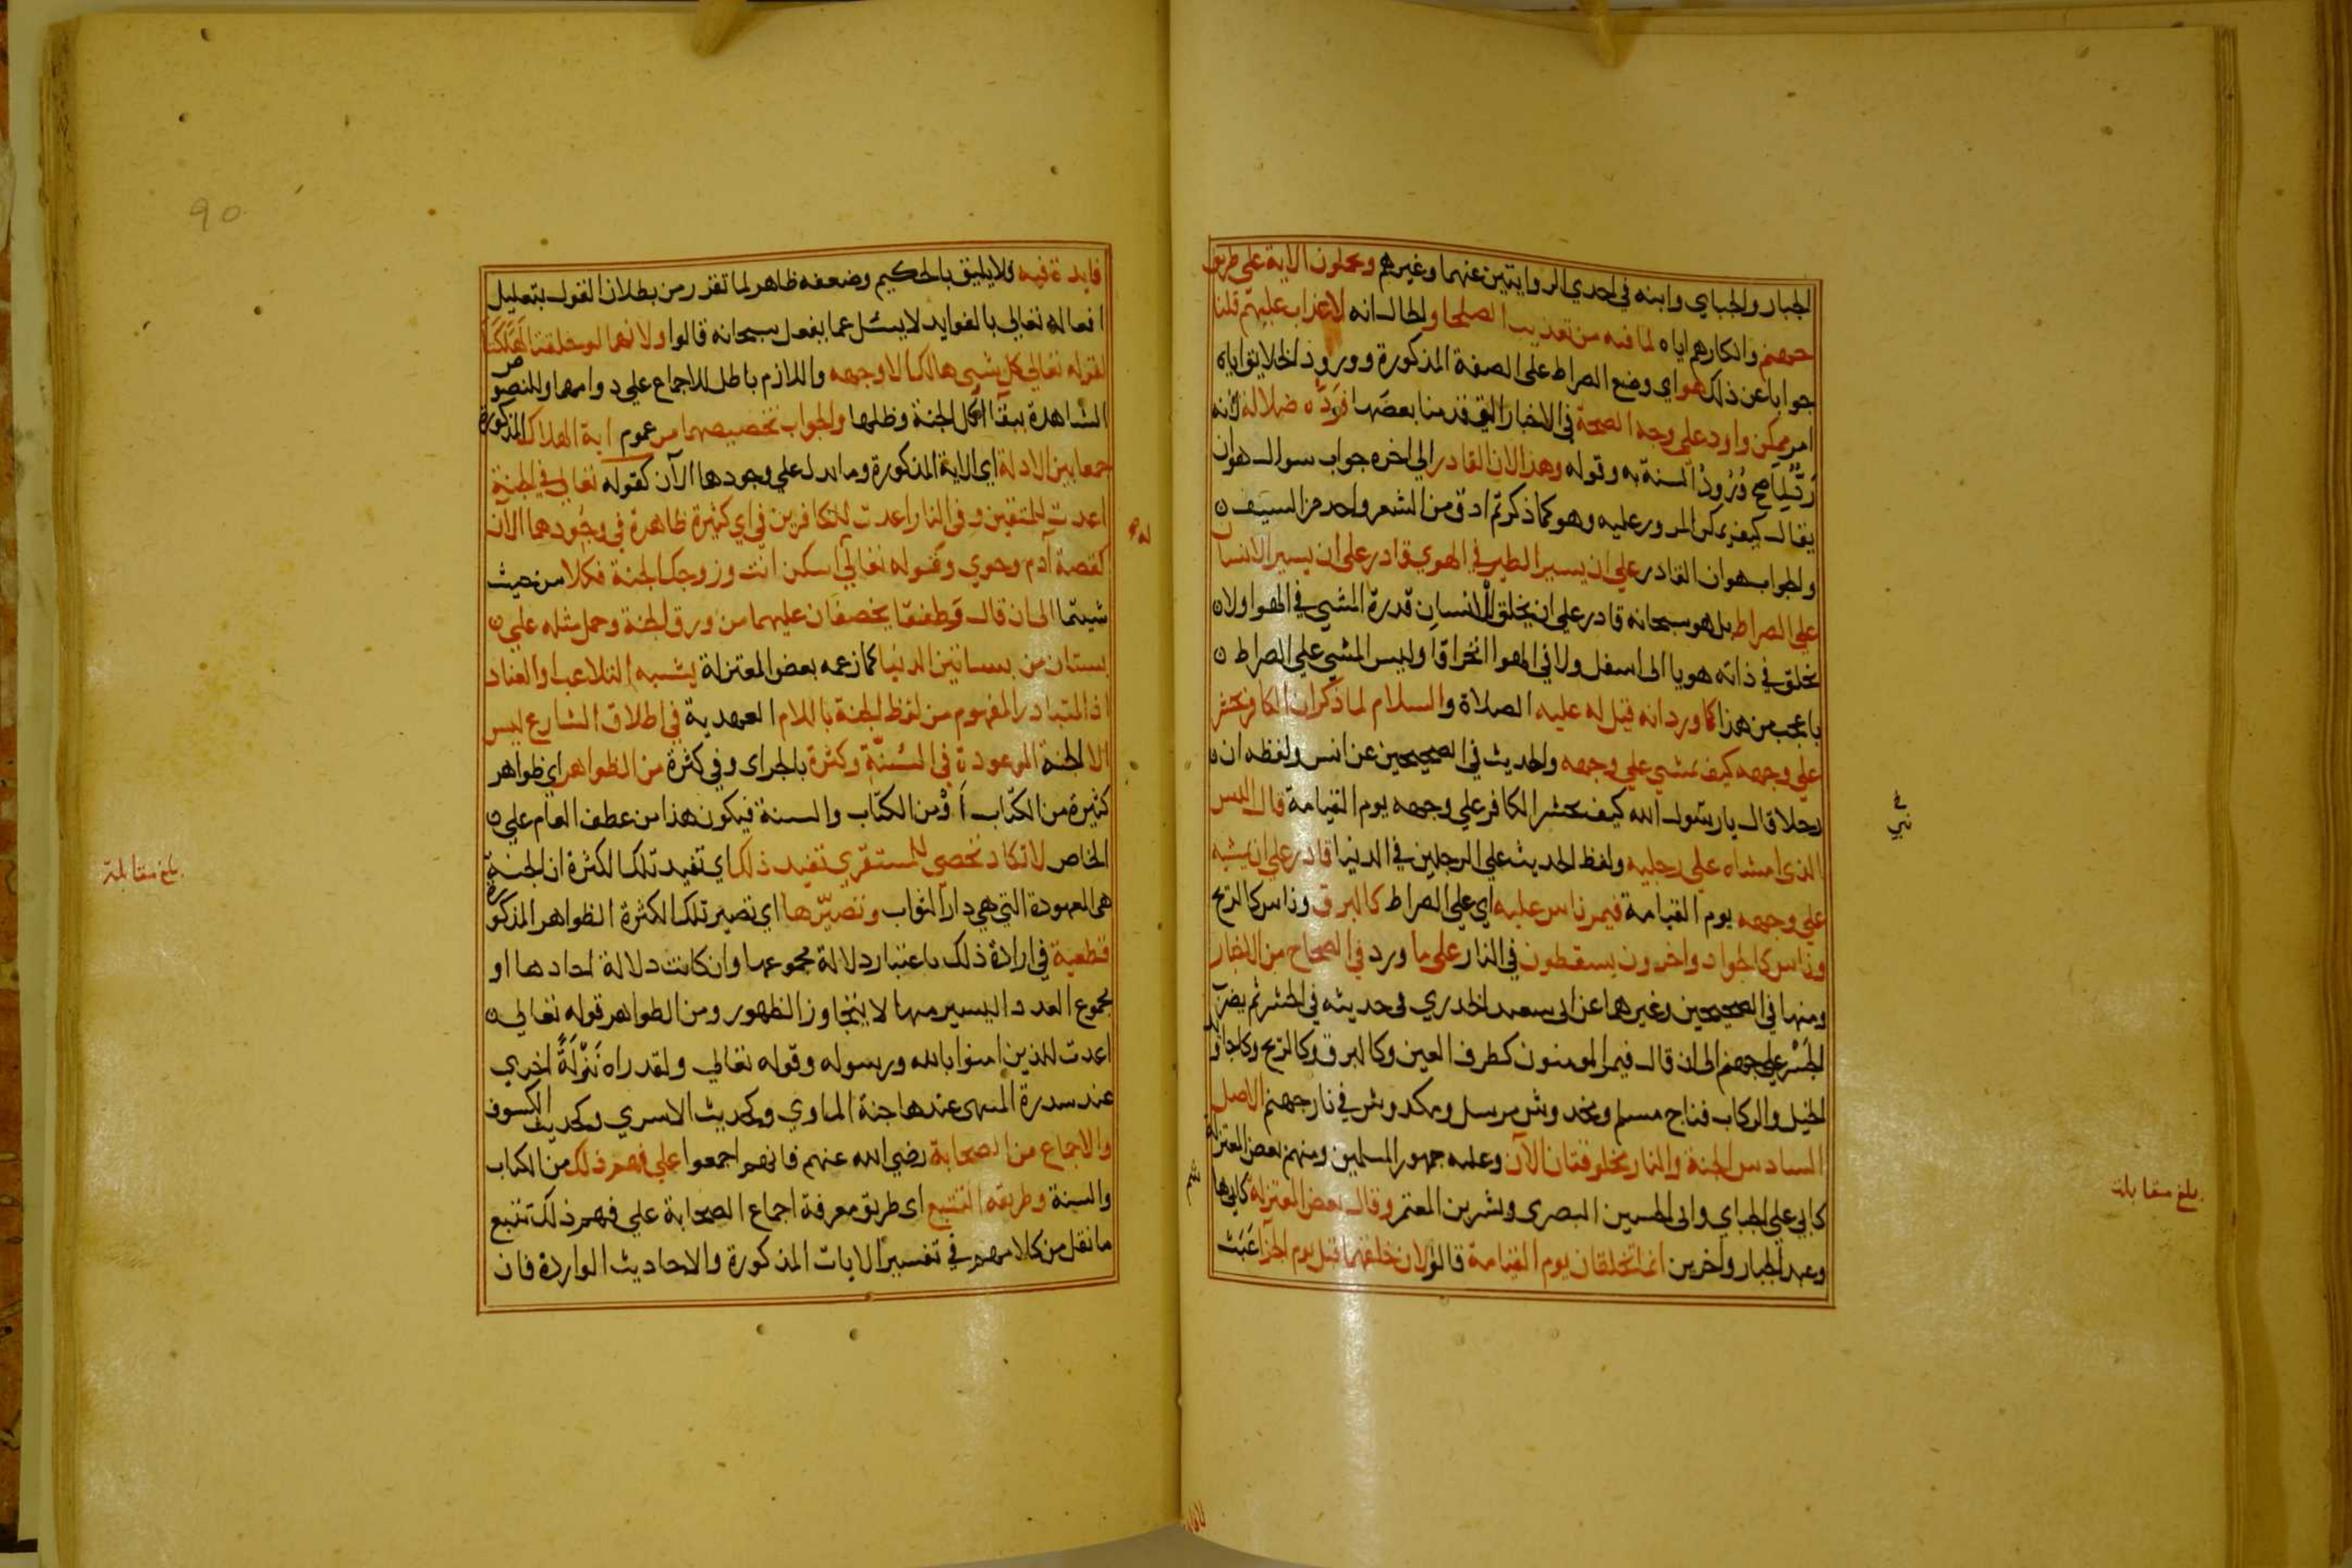 الجبار والجباي وابنه في احدي الروايتين عنهما وغيرهم ويحملون الاية علي طريق
جهنم وانكارهم اياه لما فيه من تعذيب الصلحا والحال انه لا عذاب عليهم قلنا
جوابا عن ذلك هو اي وضع الصراط علي الصفة المذكورة وورود الخلايق اياه
امر ممكن وارد علي وجه الصحة في الاخبار التي قدمنا بعضها فرده ضلالة لانه
رد لما صح ورود السنة به وقوله وهذا لان القادر الي اخره جواب سوال هو ان
يقال كيف يمكن المرور عليه وهو كما ذكرتم ادق من الشعر واحد من السيف
والجواب هو ان القادر علي ان يسير الطير في الهوي قادر علي ان يسير الانسان
علي الصراط بل هو سبحانه قادر علي ان يخلق للانسان قدرة المشي في الهوا ولا
يخلق في ذاته هويا الي اسفل ولا في الهوا انخراقا وليس المشي علي الصراط
باعجب من هذا كما ورد انه قيل له عليه الصلاة والسلام لما ذكر ان الكافر يحشر
علي وجهه كيف يمشي علي وجهه والحديث في الصحيحين عن انس ولفظه ان
رجلا قال يا رسول الله كيف يحشر الكافر علي وجهه يوم القيامة قال اليس
الذي امشاه علي رجليه ولفظ الحديث علي الرجلين في الدنيا قادر علي ان يمشيه
علي وجهه يوم القيامة فيمر ناس عليه اي علي الصراط كالبرق وناس كالريح
وناس كالجواد واخرون يسقطون في النار علي ما ورد في الصحاح من الاخبار
ومنها في الصحيحين وغيرها عن ابي سعيد الخدري في حديثه في الحشر ثم يضرب
الجسر علي جهنم الي ان قال فيمر المومنون كطرف العين وكالبرق وكالريح وكاجاود
الخيل والركاب فناج مسلم ومخدوش مرسل ومكدوش في نار جهنم الاصل
السادس الجنة والنار مخلوقتان الآن وعليه جمهور المسلمين ومنهم بعض المعتزلة
كابي علي الجباي وابي الحسين البصري وبشر بن المعتمر وقال بعض المعتزلة كابي هاشم
وعبد الجبار واخرين انما تخلقان يوم القيامة قالوا لان خلقهما قبل يوم الجزا عبث
بلغ مقابلة
فايدة فيه فلا يليق بالحكيم وضعفه ظاهر لما تقرر من بطلان القول بتعليل
افعاله تعالي بالفوايد لا يسئل عما يفعل سبحانه قالوا ولانهما لو خلقتا لهلكتا
لقوله تعالي كل شيء هالك الا وجهه واللازم باطل للاجماع علي دوامهما وللنصوص
الشاهدة ببقا اكل الجنة وظلها والجواب تخصيصهما من عموم اية الهلاك المذكورة
جمعا بين الادلة اي الاية المذكورة وما يدل علي وجودها الآن كقوله تعالي في الجنة
اعدت للمتقين وفي النار اعدت للكافرين في اي كثيرة ظاهرة في وجودهما الآن
كقصة آدم وحوي وقوله تعالي اسكن انت وزوجك الجنة فكلا من حيث
شيتما الي ان قال وطفقا يخصفان عليهما من ورق الجنة وحمل مثله علي
بستان من بساتين الدنيا كما زعمه بعض المعتزلة يشبه التلاعب والعناد
اذ المتبادر المفهوم من لفظ الجنة باللام العهدية في اطلاق الشارع ليس
الا الجنة الموعودة في السنة وكثرة بالجر اي وفي كثرة من الظواهر اي ظواهر
كثيرة من الكتاب أو من الكتاب والسنة فيكون هذا من عطف العام علي
الخاص لا تكاد تحصي للمستقري تفيد ذلك اي تفيد تلك الكثرة ان الجنة
هي المعهودة التي هي دار الثواب وتصيرها اي تصير تلك الكثرة الظواهر المذكورة
قطعية في ارادة ذلك باعتبار دلالة مجموعها وان كانت دلالة احادها او
مجموع العدد اليسير منها لا يتجاوز الظهور ومن الظواهر قوله تعالي
اعدت للذين امنوا بالله ورسوله وقوله تعالي ولقد راه نزلة اخري
عند سدرة المنتهي عندها جنة الماوي وكحديث الاسري وكحديث الكسوف
والاجماع من الصحابة رضي الله عنهم فانهم اجمعوا علي فهم ذلك من الكتاب
والسنة وطريقه التتبع اي طريق معرفة اجماع الصحابة علي فهم ذلك تتبع
ما نقل من كلامهم في تفسير الايات المذكورة والاحاديث الواردة فان
بلغ مقابلة
90